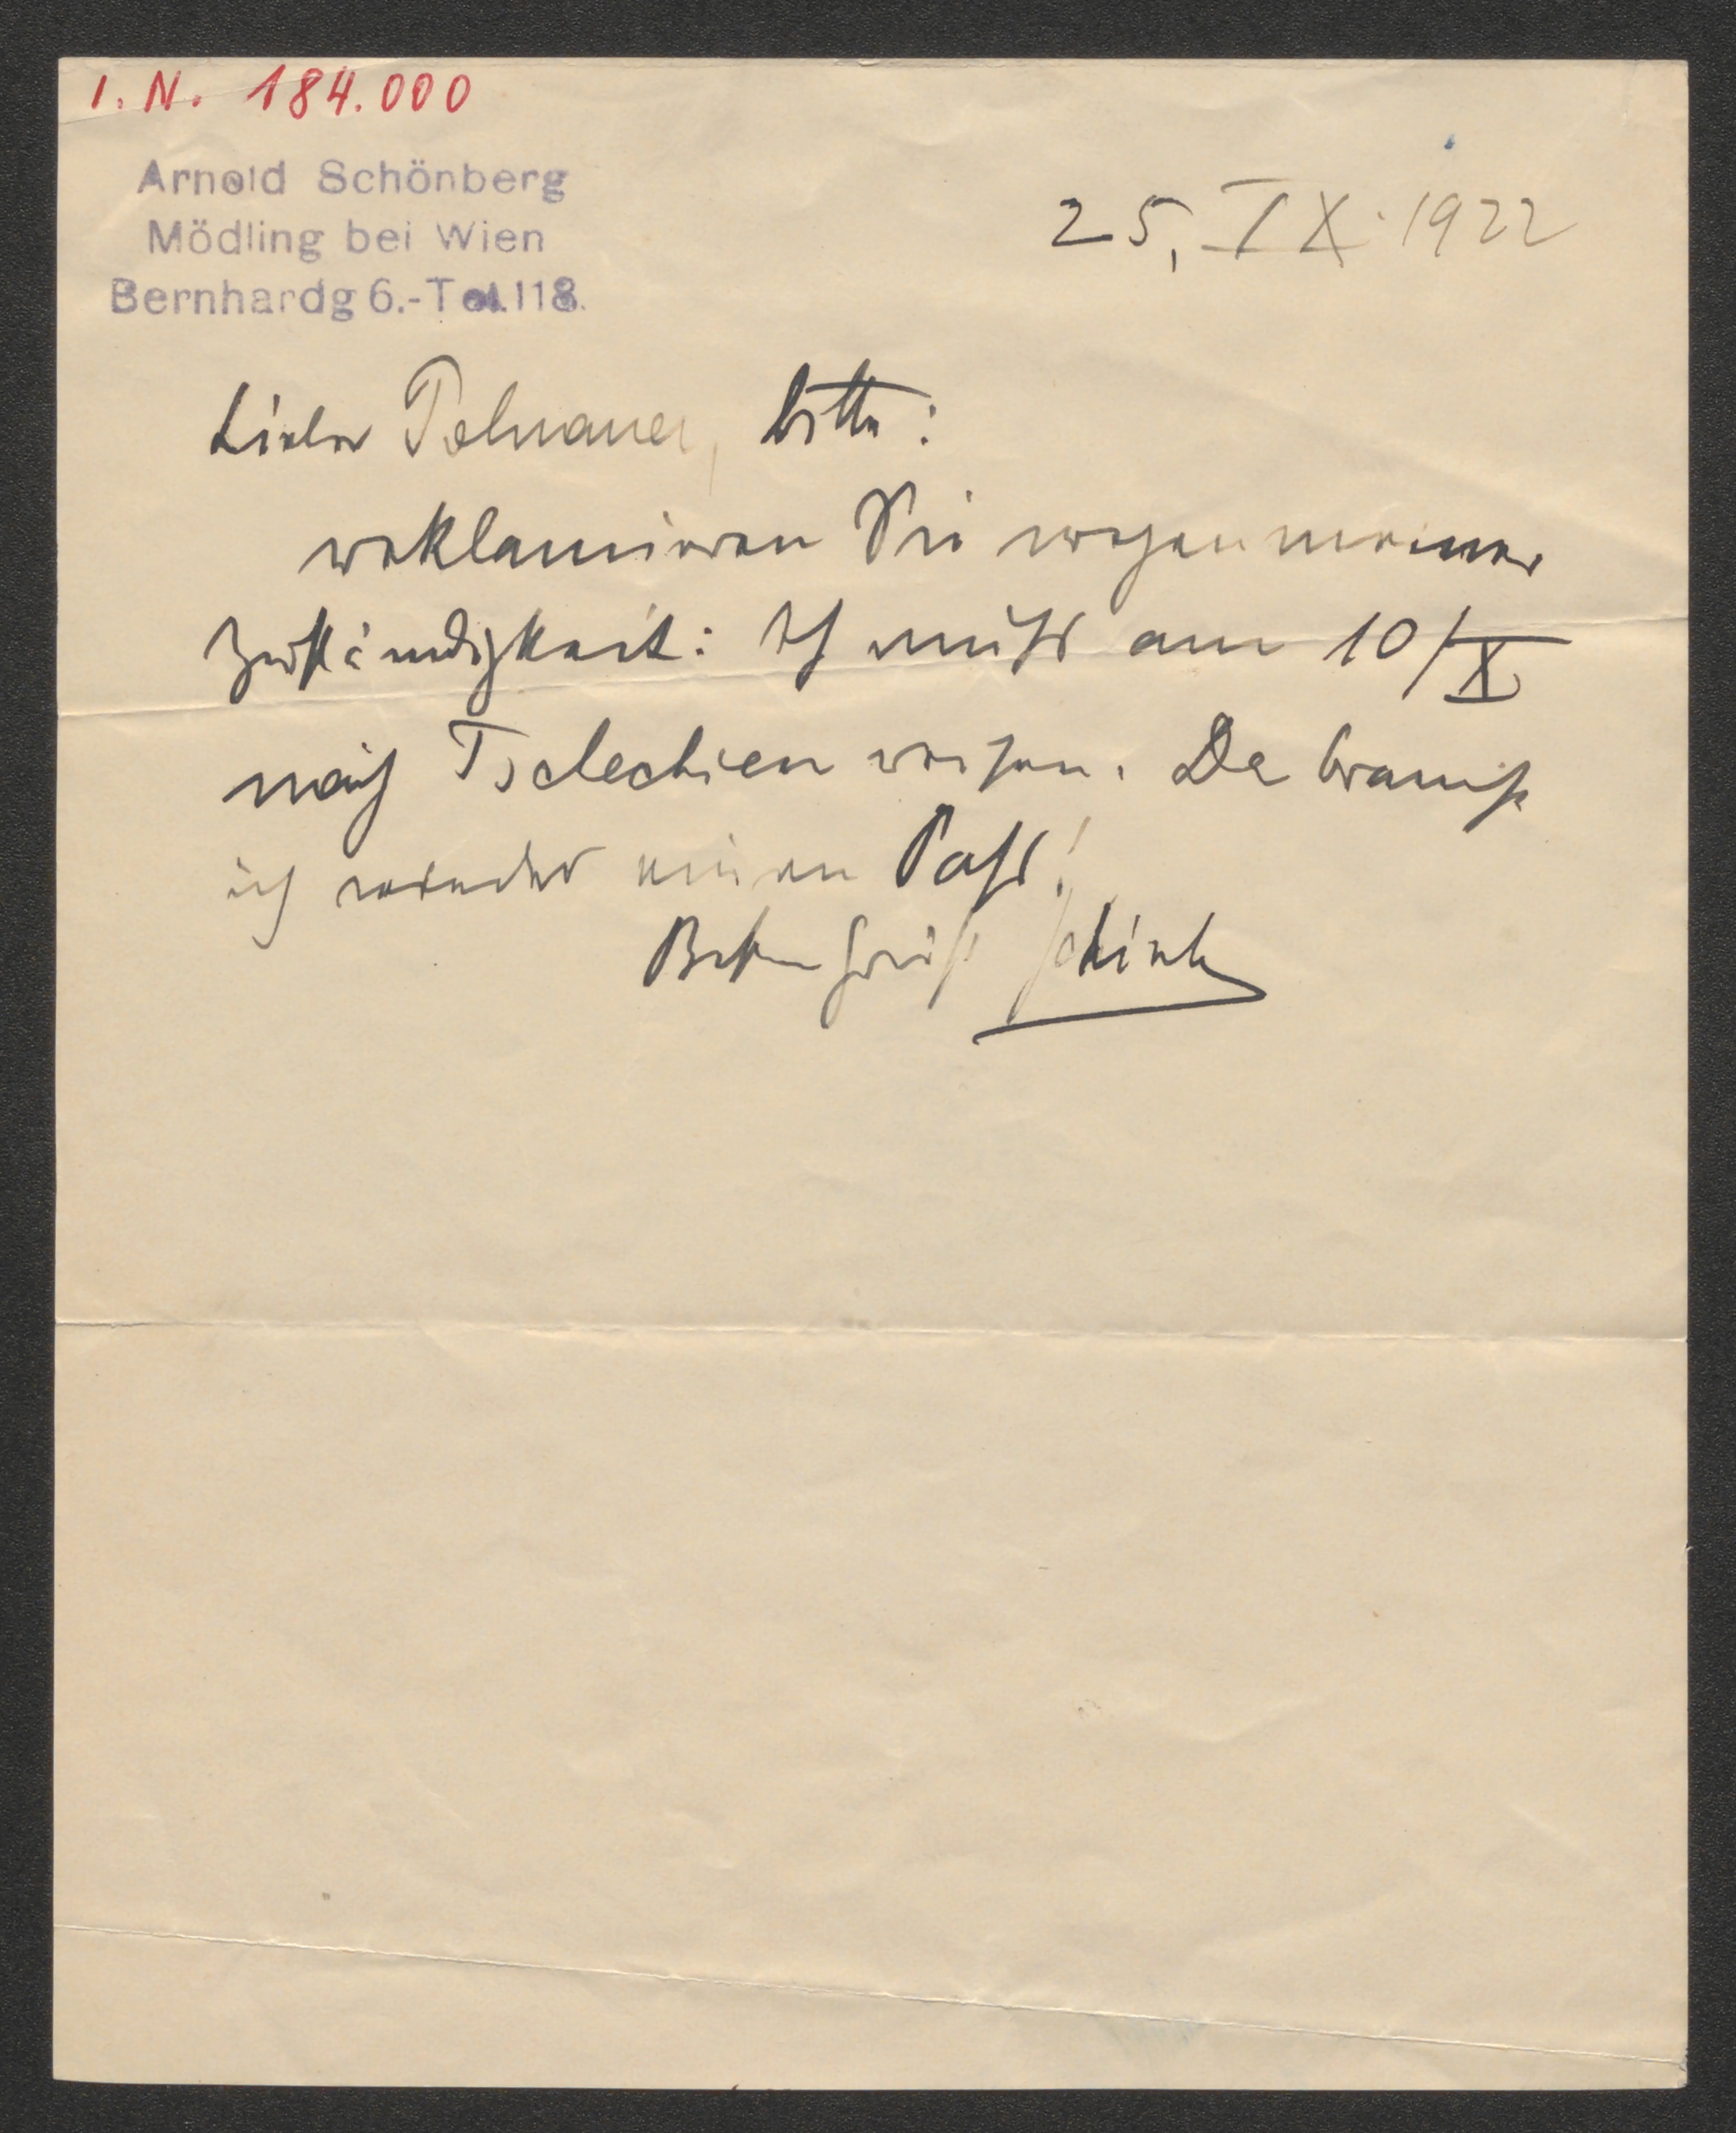 I. N. 184.000
Arnold Schönberg
Mödling bei Wien
Bernhardg 6.-Tel.118.
25. IX. 1922
Lieber Polnauer, bitte:
reklamieren Sie wegen meiner
Zuständigkeit: Ich muß am 10/X
nach Tschechien reisen. Da brauche
ich wieder einen Paß!
Besten Gruß